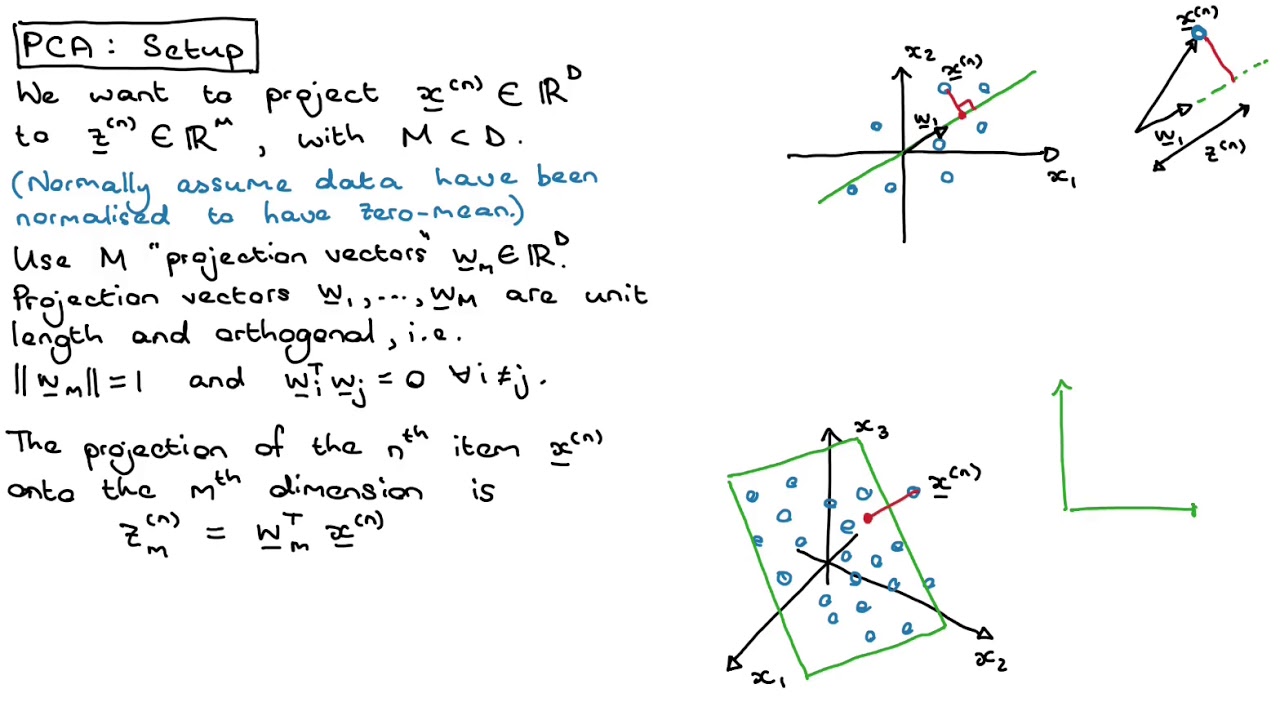 PCA: Setup
We want to project x^(n) ∈ ℝ^D
to z^(n) ∈ ℝ^M, with M < D.
(Normally assume data have been
normalised to have zero-mean.)
Use M "projection vectors" w_m ∈ ℝ^D.
Projection vectors w_1, ..., w_M are unit
length and orthogonal, i.e.
||w_m|| = 1 and w_i^T w_j = 0 ∀ i ≠ j.
The projection of the n^th item x^(n)
onto the m^th dimension is
z_m^(n) = w_m^T x^(n)
x_2
x^(n)
w_1
x_1
x^(n)
w_1
z^(n)
x_3
x^(n)
x_1
x_2